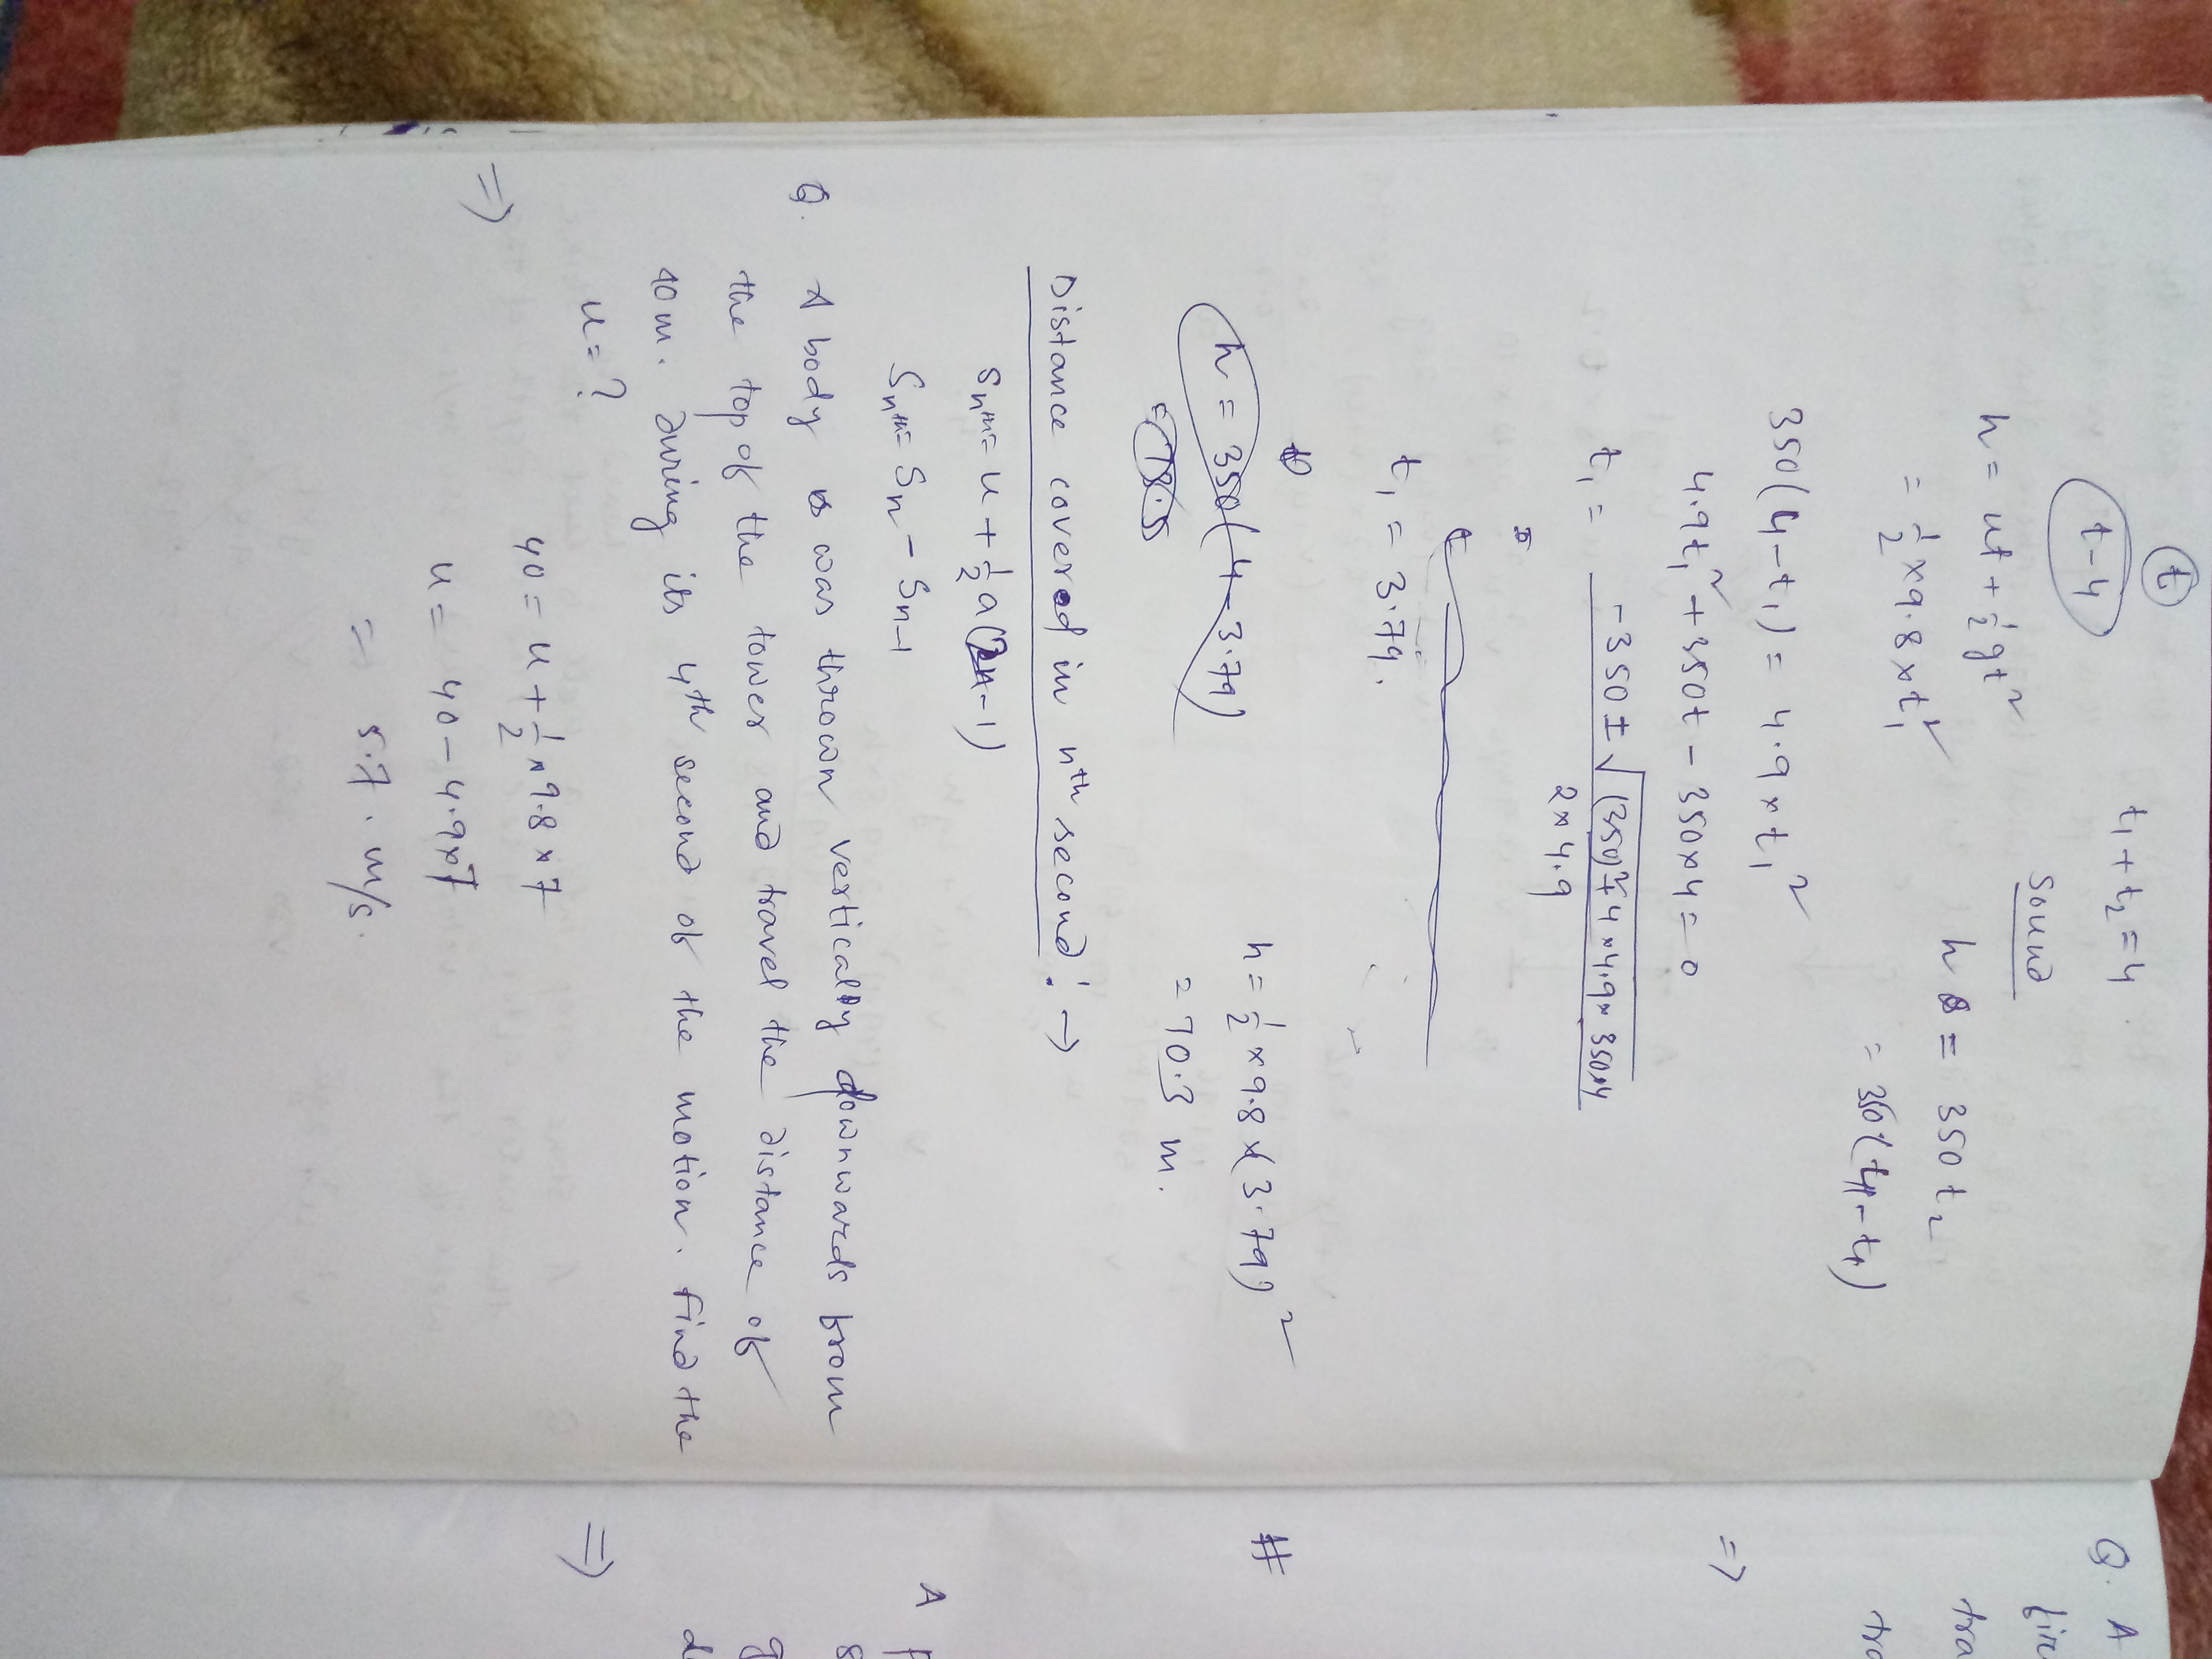 t
t-4
t₁ + t₂ = 4
Sound
h = ut + ½ gt²
= ½ × 9.8 × t₁²
h = 350 t₂
= 350 (4 - t₁)
350(4-t₁) = 4.9 × t₁²
4.9t₁² + 350t - 350×4 = 0
t₁ = -350 ± √(350)² + 4 × 4.9 × 350×4 / 2 × 4.9
t₁ = 3.79.
h = 350(4 - 3.79)
h = ½ × 9.8 × (3.79)²
= 70.3 m.
Distance covered in nth second! →
Snth = u + ½ a(2n-1)
Snth = Sn - Sn-1
Q. A body was thrown vertically downwards from
the top of the tower and travel the distance of
40m. During its 4th second of the motion. Find the
u = ?
⇒ 40 = u + ½ × 9.8 × 7
u = 40 - 4.9×7
= 5.7. m/s.
Q. A
fir
tra
tra
⇒
#
A
8
g
d
⇒